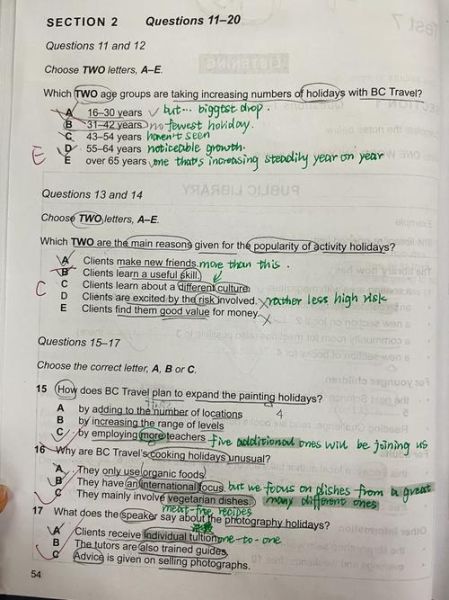 SECTION 2 Questions 11–20
Questions 11 and 12
Choose TWO letters, A–E.
Which TWO age groups are taking increasing numbers of holidays with BC Travel?
A 16–30 years but... biggest drop.
B 31–42 years no fewest holiday.
C 43–54 years haven't seen
D 55–64 years noticeable growth.
E E over 65 years one that's increasing steadily year on year
PUBLIC LIBRARY
Questions 13 and 14
Choose TWO letters, A–E.
Which TWO are the main reasons given for the popularity of activity holidays?
A Clients make new friends. more than this.
B Clients learn a useful skill.
C C Clients learn about a different culture.
D Clients are excited by the risk involved. rather less high risk
E Clients find them good value for money.
Questions 15–17
Choose the correct letter, A, B or C.
15 How does BC Travel plan to expand the painting holidays?
A by adding to the number of locations 4
B by increasing the range of levels
C by employing more teachers five additional ones will be joining us
16 Why are BC Travel's cooking holidays unusual?
A They only use organic foods.
B They have an international focus. but we focus on dishes from a great
C They mainly involve vegetarian dishes. many different ones
meat-free recipes
17 What does the speaker say about the photography holidays?
A Clients receive individual tuition. one-to-one
B The tutors are also trained guides.
C Advice is given on selling photographs.
54